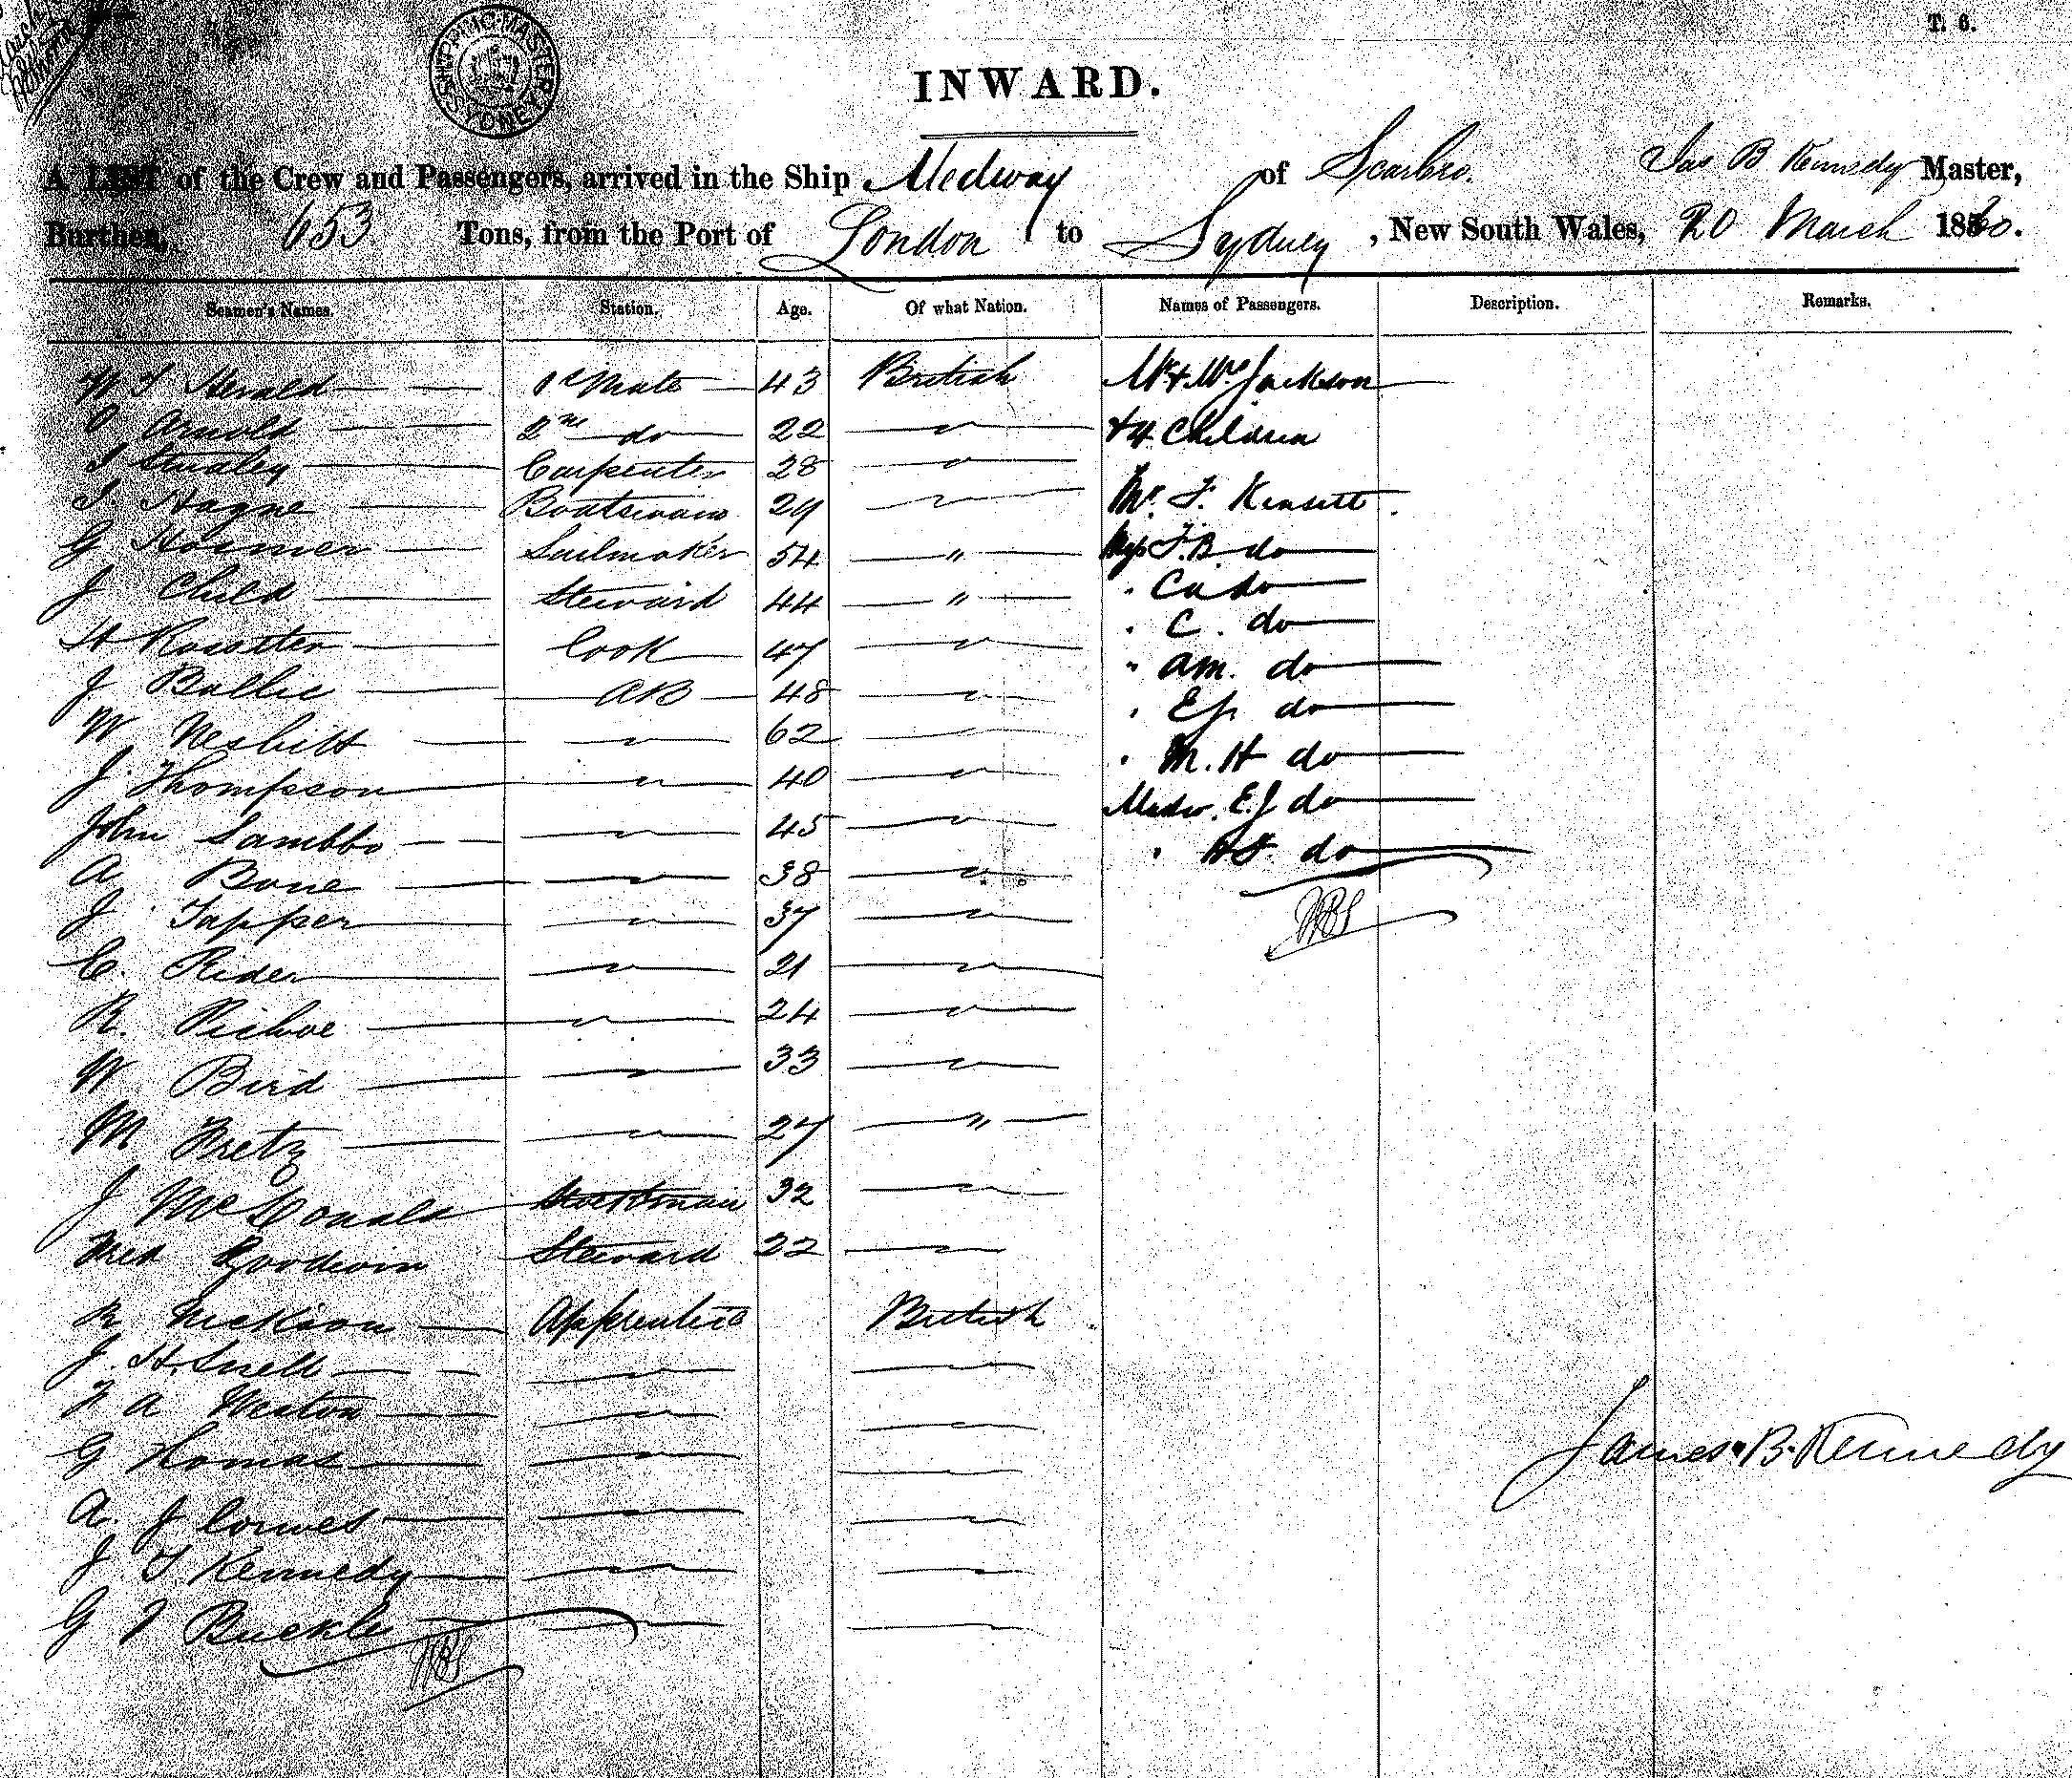 T. 6.
SHIPPING MASTER SYDNEY
INWARD.
A LIST of the Crew and Passengers, arrived in the Ship Medway of Scarbro. Jas B Kennedy Master,
Burthen, 653 Tons, from the Port of London to Sydney, New South Wales, 20 March 1860.
Seamen's Names. Station. Age. Of what Nation. Names of Passengers. Description. Remarks.
Herald 1st Mate 43 British Mr & Mrs Jackson
Arnold 2nd do 22 " & 4 Children
Carpenter 28 "
J. Hagne Boatswain 29 " Mr. F. Kensett
G Sailmaker 54 " Miss F.B do
J Child Steward 44 " " do
H Rossiter Cook 47 " " C. do
J AB 48 " " am. do
W Nesbitt " 62 " " do
J. Thompson " 40 " " M. H do
John " 45 " E. J do
A Bone " 38 " " do
J Tapper " 37 "
C. Rider " 21 "
R. " 24 "
W Bird " 33 "
M Fretz " 27 "
J McDonald 32 "
Fred Goodwin Steward 22 "
Apprentice British
J. H. Snell "
F A Weston "
G Thomas "
A. J "
J. T. Kennedy "
G J Buckle "
James B. Kennedy